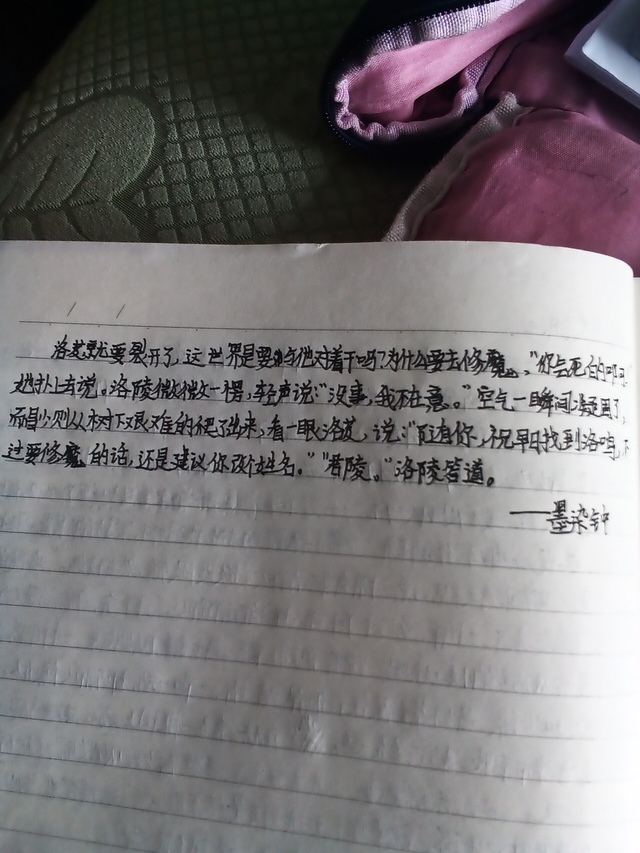 洛芠就要裂开了,这世界是要与他对着干吗?为什么要去修魔。"你会死的
她扑上去说。洛陵微微一愣,轻声说:"没事,我不在意。"空气一瞬间凝固了,
则从树下艰难的爬了出来,看一眼洛芠,说:"还有你,祝早日找到洛鸣,不
过要修魔的话,还是建议你改个姓名。""君陵。"洛陵答道。
——墨染钟